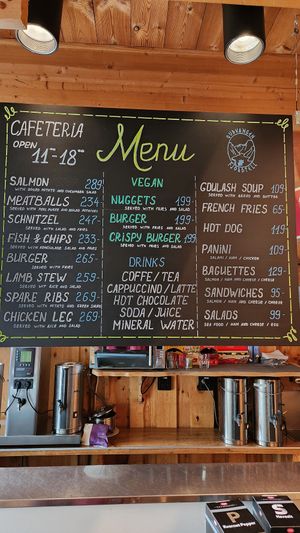 CAFETERIA
OPEN
11-18⁰⁰
Menu
SALMON 289
SERVED WITH BOILED POTATO AND CUCUMBER SALAD
MEATBALLS 234-
SCHNITZEL 247-
SERVED WITH SALAD AND FRIES
FISH & CHIPS 233-
SERVED WITH FRIES AND SALAD
BURGER 265-
SERVED WITH FRIES
LAMB STEW 259-
SERVED WITH RICE AND SALAD
SPARE RIBS 269-
CHICKEN LEG 269-
SERVED WITH RICE AND SALAD
VEGAN
NUGGETS 199-
SERVED WITH FRIES AND SALAD
BURGER 199-
SERVED WITH FRIES AND SALAD
CRISPY BURGER 199
SERVED WITH FRIES AND SALAD
DRINKS
COFFE/TEA
CAPPUCCINO/LATTE
HOT CHOCOLATE
SODA/JUICE
MINERAL WATER
HOSTELL
GOULASH SOUP 109
SERVED WITH BREAD AND BUTTER
FRENCH FRIES 65-
HOT DOG 119-
PANINI 109-
SALAMI / HAM / CHEESE
BAGUETTES 129-
SALMON / HAM AND CHEESE / EGG
SANDWICHES 95-
SALMON / HAM AND CHEESE / EGG
SALADS 99-
SEA FOOD / HAM AND CHEESE / EGG
P
Gourmet Pepper
S